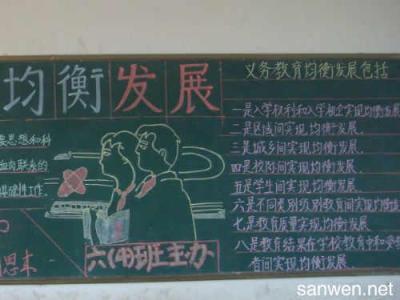 均衡发展
义务教育均衡发展包括
一是入学权利和入学机会实现均衡发展
二是区域间实现均衡发展.
三是城乡间实现均衡发展.
四是校际间实现均衡发展.
五是学生间实现均衡发展.
六是不同类别级别教育间实现均衡
七是教育质量实现均衡发展.
八是教育结果在学校教育中和受教
者间实现均衡发展.
思想和科
联系的
性工作
思本
六(4)班主办
sanwen.net